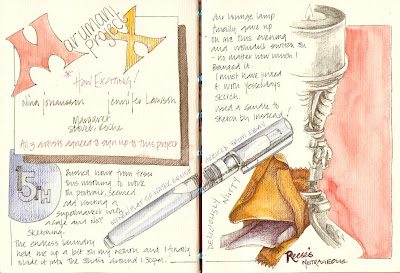 Marumany
project X
* How Exciting!
Nina Johansson
Jennifer Lawson
Margaret
All 3 artists agreed to sign up to this project
15th
Rushed home from
this morning to work
on portrait. Seemed
odd visiting a
supermarket with
a café and NOT
sketching.
The endless laundry
held me up a bit on my return and I finally
made it into the studio around 1.30pm.
My lounge lamp
finally gave up
on me this evening
and wouldn't switch on
- no matter how much I
banged it.
I must have jinxed
it with yesterdays
sketch.
Used a candle to
sketch by instead!
DELICIOUSLY NUTTY
Reese's
NUTRAGEOUS